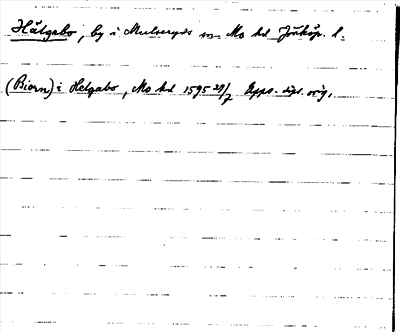 Hälgabo, by i Mulseryds sn Mo hd Jönköp. l.
(Biorn) i Helgabo, Mo hd 1595 29/7 Upps. dipl. orig.